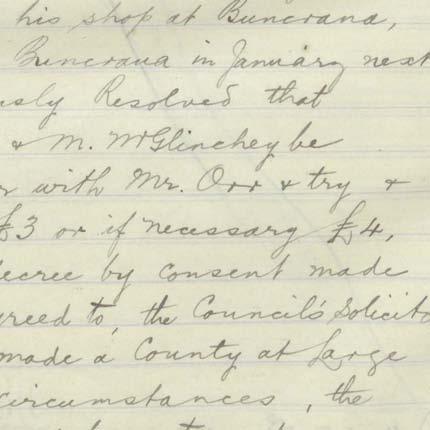 his shop at Buncrana,
Buncrana in January next
usly Resolved that
& M. McGlinchey be
r with Mr. Orr & try &
£3 or if necessary £4,
decree by consent made
greed to, the Council's Solicito
made a County at Large
circumstances, the